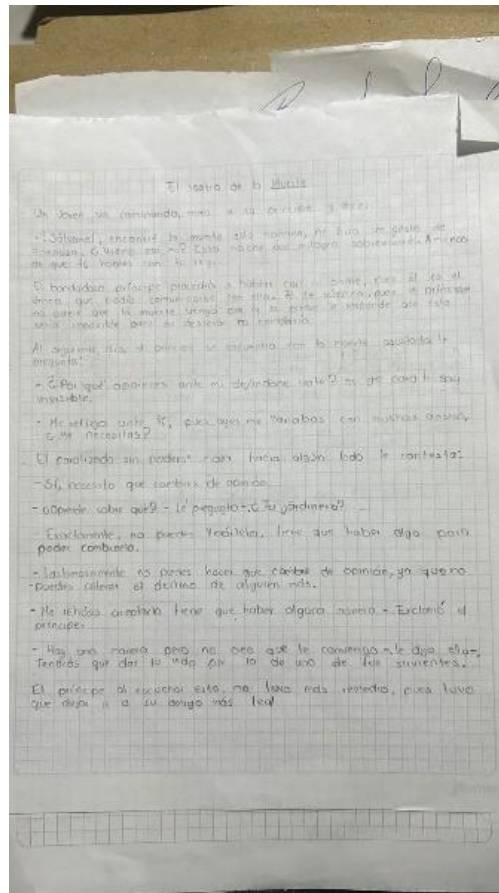 El teatro de la Muerte
Un joven va caminando, a su principe y dice:
- ¡Sálvame!, encontré la muerte esta mañana, me hizo un gesto de
amenaza, esta noche, que a menos
de que tú hables con la
El bondadoso príncipe procedió a hablar con la muerte, pues él es el
único que podía comunicarse con
no quiere que la muerte venga por la y responde que esta
sería imposible pues su destino no cambiaría
Al siguiente día el príncipe se encuentra con la muerte le
pregunta:
- ¿Por qué apareces ante mi dejándome verte? es que para ti soy
invisible.
- Me reflejo ante ti, pues ayer me llamabas con muchas ansias,
¿Me necesitas?
El paralizado sin poder correr hacia algún lado le contesta:
- Sí, necesito que cambies de opinión
- ¿Opinión sobre qué? - Le preguntó -. ¿Tu jardinero?
- Exactamente, no puedes tiene que haber algo para
poder cambiarlo.
- Lastimosamente no puedes hacer que cambie de opinión, ya que no
puedes alterar el destino de alguien más.
- Me rehúso aceptarlo tiene que haber alguna manera - Exclamó el
príncipe
- Hay una manera pero no creo que te convenga - le dijo ella -,
Tendrás que dar tu vida por la de uno de tus sirvientes.
El príncipe al escuchar esto, no tuvo más remedio, pues tuvo
que dejar ir a su amigo más leal